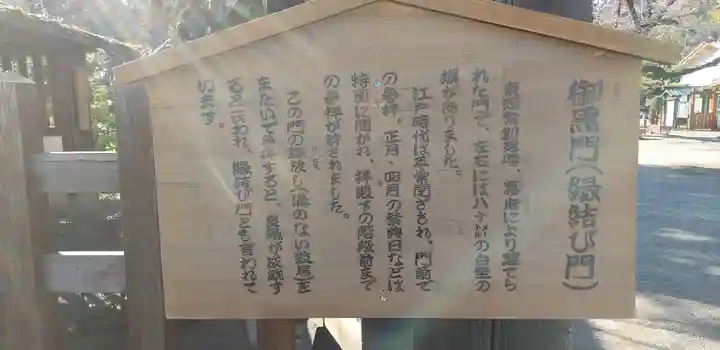 御黒門(縁結び門)
東照宮創建時、藩主により建てら
れた門で、左右には八十間の白壁の
塀がありました。
江戸時代は平常閉ざされ、門前で
の参拝。正月、四月の祭典日などは
特別に開かれ、拝殿下の階段前まで
の参拝が許されました。
この門の敷放し(溝のない敷居)を
またいで参拝すると、良縁が成就す
ると云われ、縁結び門とも言われて
います。